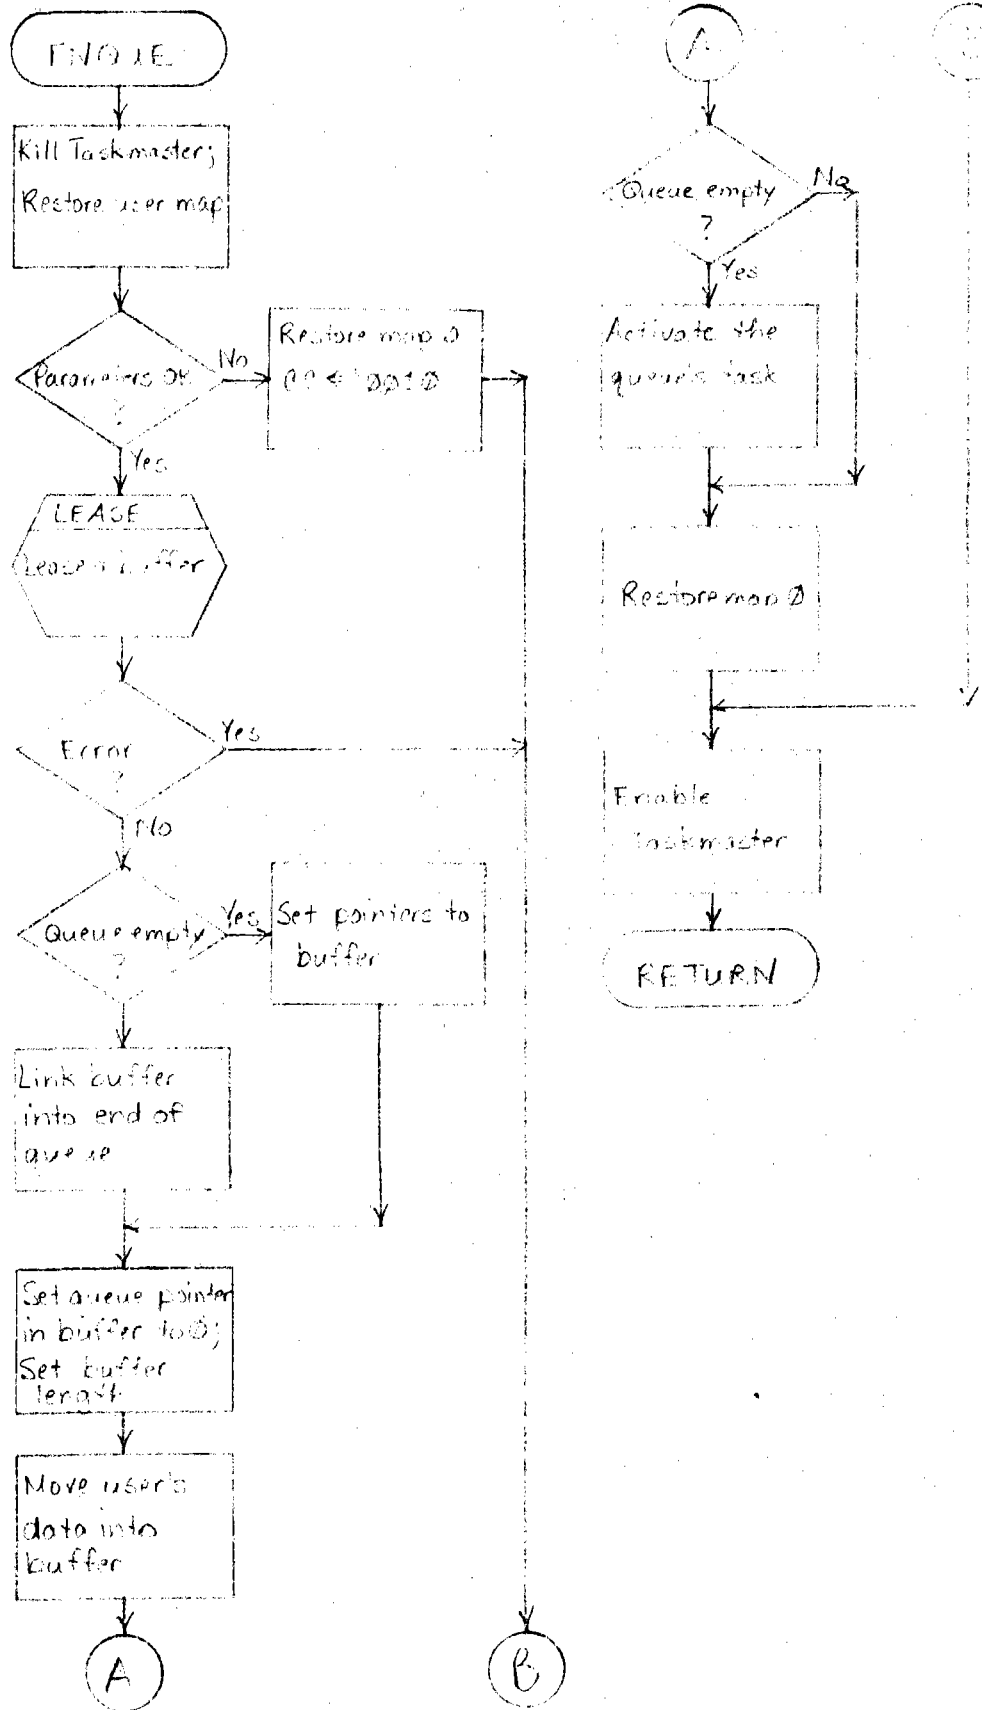 ENQUE
Kill Taskmaster;
Restore user map
Parameters OK
?
No
Yes
Restore map Ø
CC ← 'ØØ1Ø
LEASE
Lease a buffer
Error
?
Yes
No
Queue empty
?
Yes
Set pointers to
buffer
Link buffer
into end of
queue
Set queue pointer
in buffer to Ø;
Set buffer
length
Move user's
data into
buffer
A
B
A
Queue empty
?
No
Yes
Activate the
queue's task
Restore map Ø
Enable
Taskmaster
RETURN